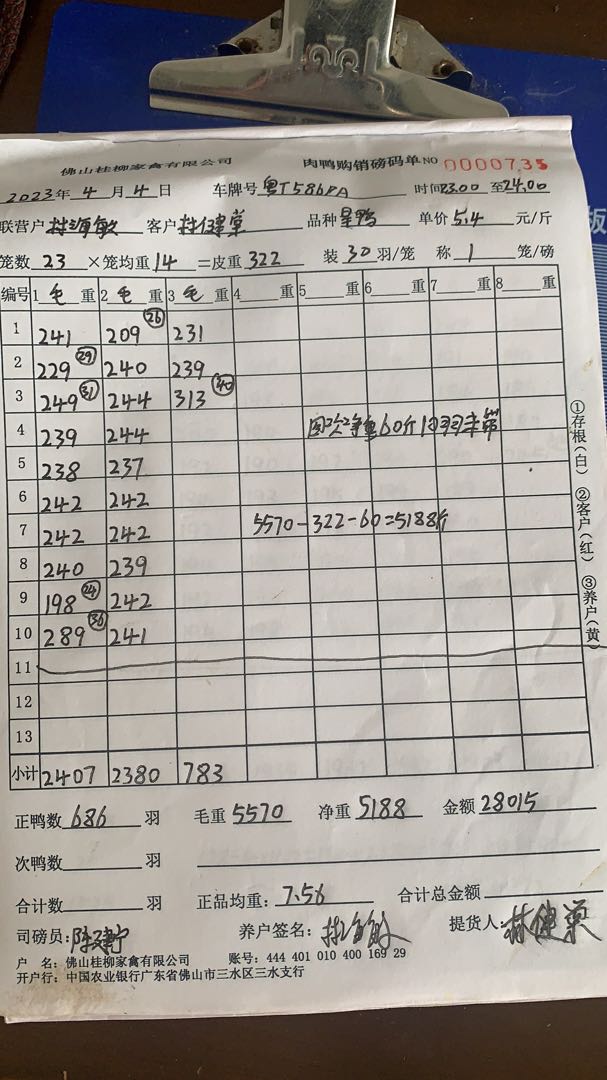 佛山桂柳家禽有限公司 肉鸭购销磅码单 NO 0000735
2023年 4 月 4 日 车牌号 粤T586PA 时间23.00 至24.00
联营户 客户 品种 单价5.4 元/斤
笼数 23 ×笼均重 14 =皮重 322 装 30 羽/笼 称 1 笼/磅
编号 1 毛 重 2 毛 重 3 毛 重 4 重 5 重 6 重 7 重 8 重
1 241 209 (26) 231
2 229 (29) 240 239
3 249 (31) 244 313 (40)
4 239 244
5 238 237
6 242 242
7 242 242 5570-322-60=5188斤
8 240 239
9 198 (24) 242
10 289 (36) 241
11
12
13
小计 2407 2380 783
正鸭数 686 羽 毛重 5570 净重 5188 金额 28015
次鸭数 羽
合计数 羽 正品均重: 7.56 合计总金额
司磅员: 养户签名: 提货人:
户 名: 佛山桂柳家禽有限公司 账号: 444 401 010 400 169 29
开户行: 中国农业银行广东省佛山市三水区三水支行
①存根(白) ②客户(红) ③养户(黄)
板